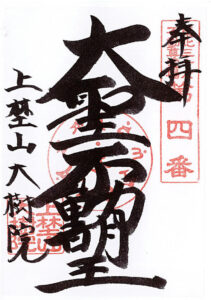 奉拝
四番
大聖不動明王
上埜山大樹院